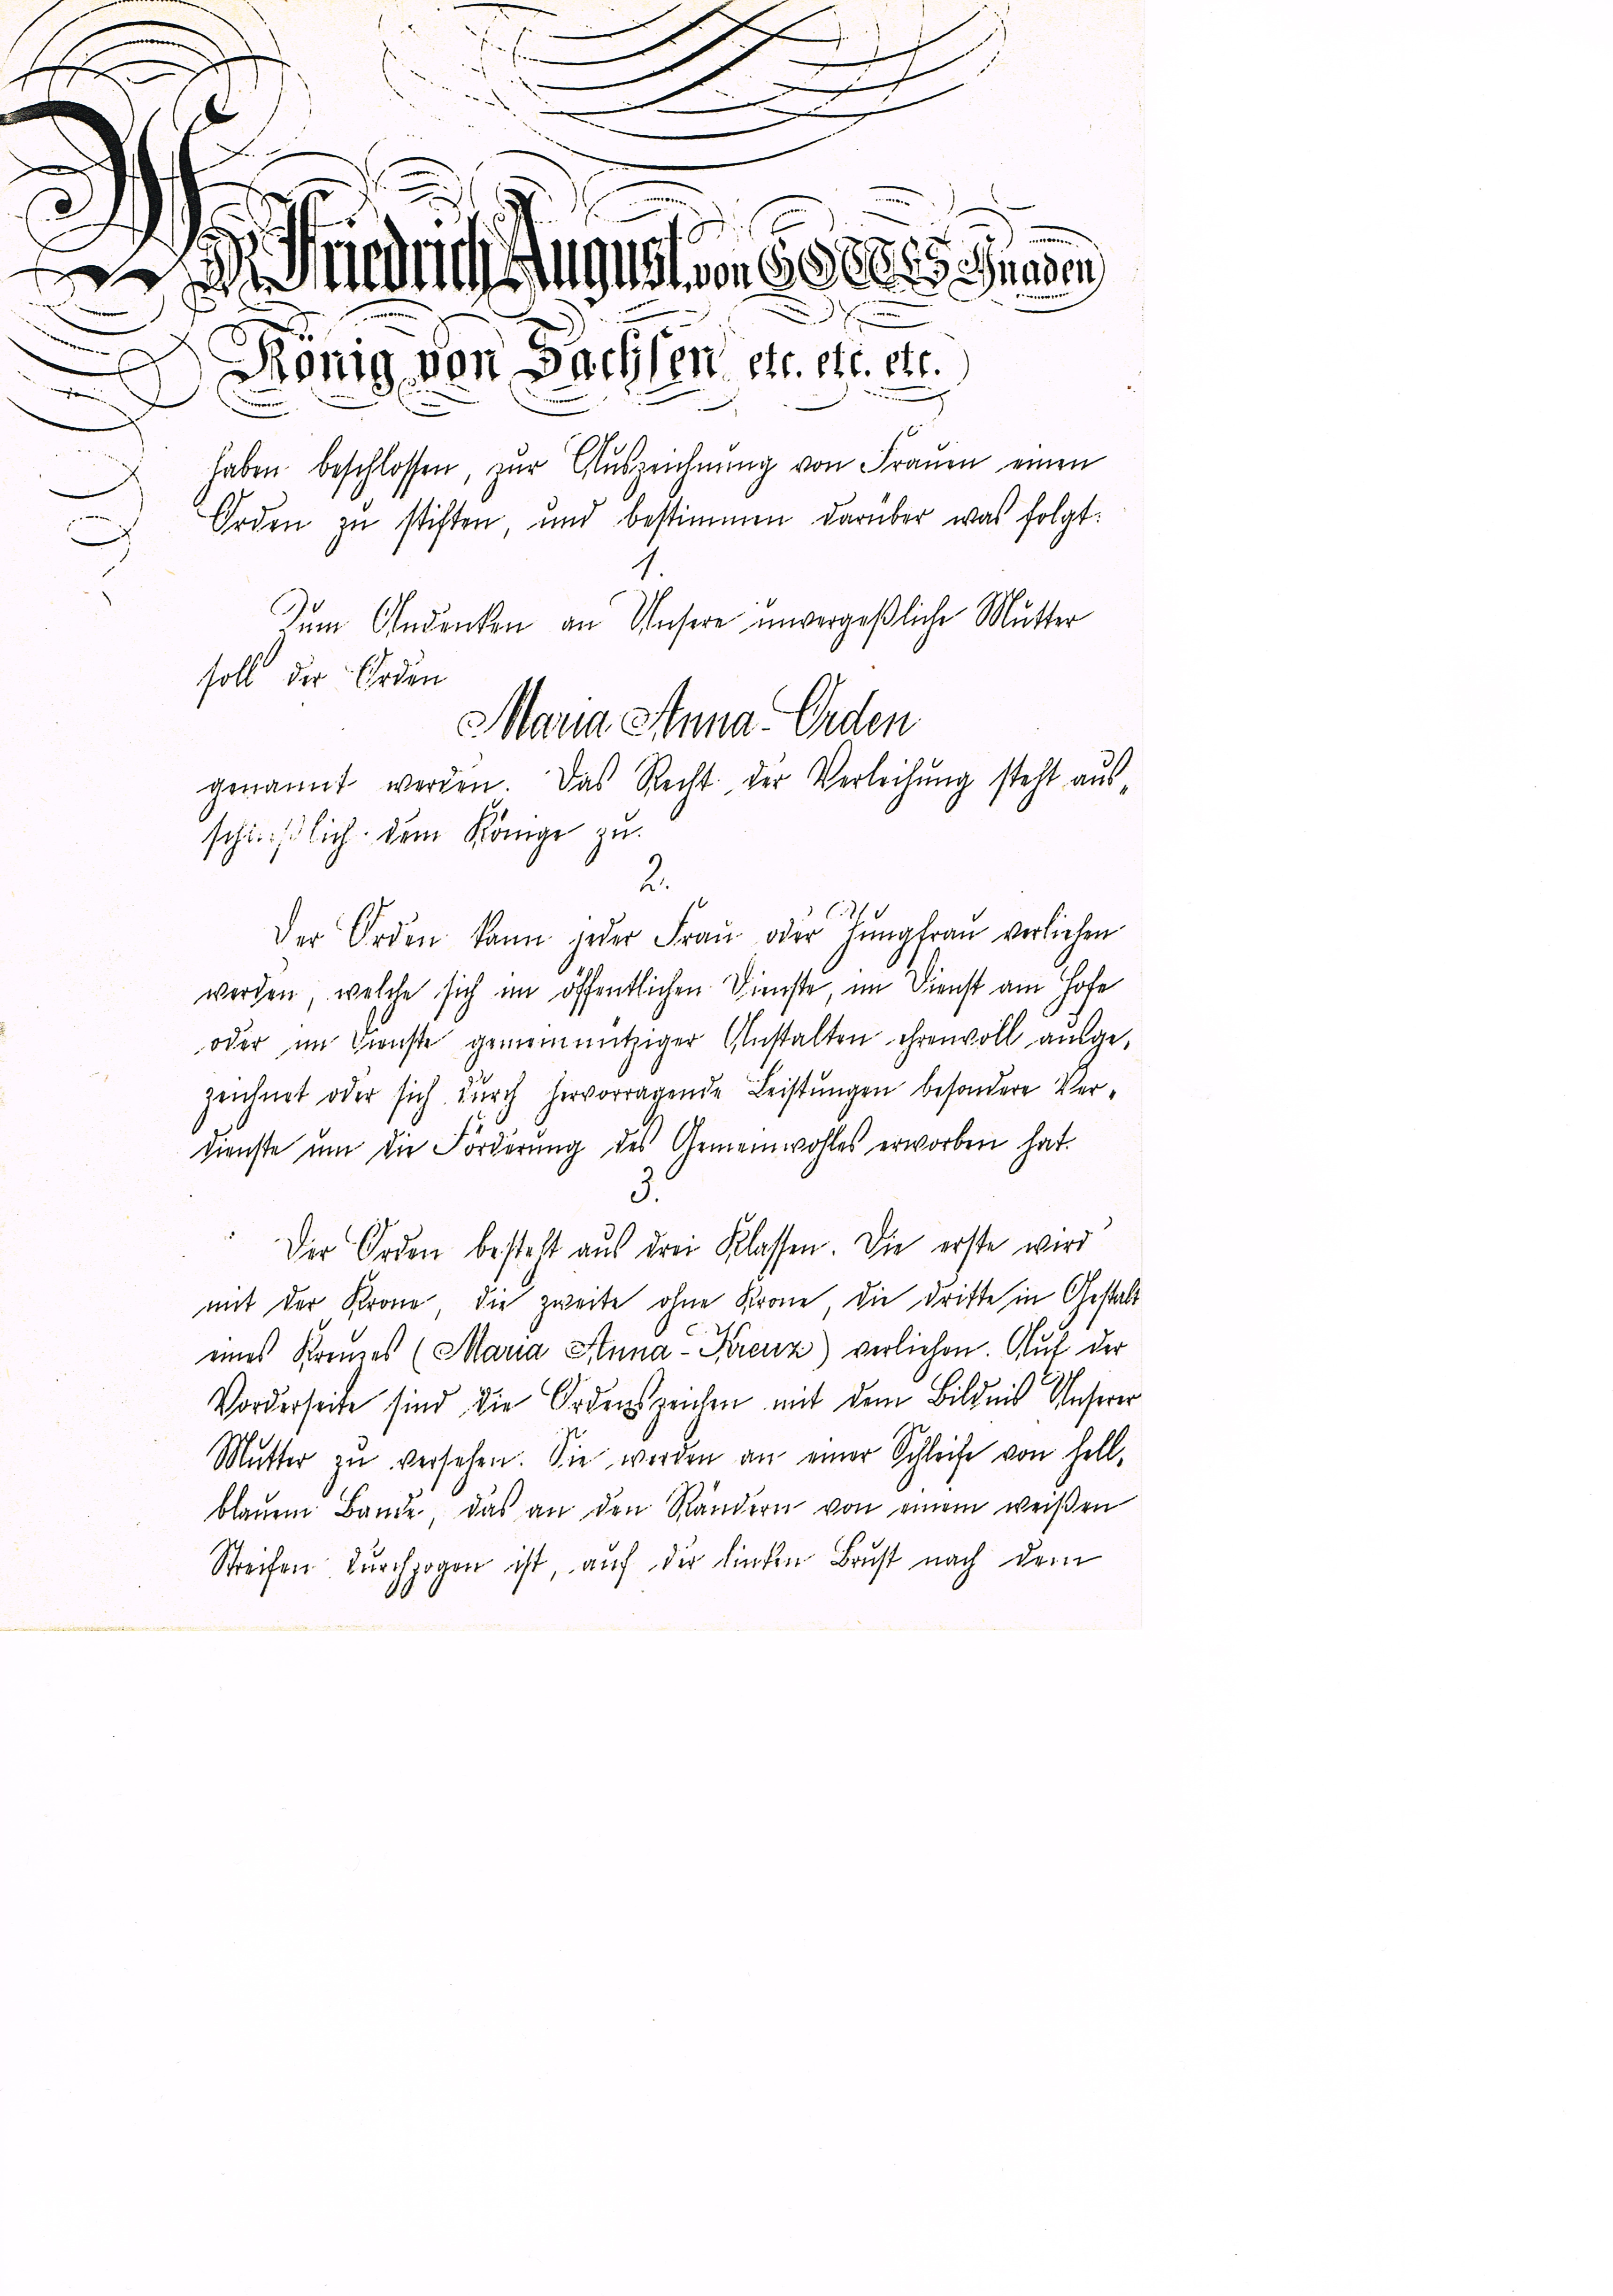 Wir, Friedrich August, von GOTTES Gnaden
König von Sachsen etc. etc. etc.
haben beschlossen, zur Auszeichnung von Frauen einen
Orden zu stiften, und bestimmen darüber was folgt:
1.
Zum Andenken an Unsere unvergeßliche Mutter
soll der Orden
Maria Anna-Orden
genannt werden. Das Recht der Verleihung steht aus„
schließlich dem Könige zu.
2.
Der Orden kann jeder Frau oder Jungfrau verliehen
werden, welche sich im öffentlichen Dienste, im Dienst am Hofe
oder im Dienste gemeinnütziger Anstalten ehrenvoll ausge„
zeichnet oder sich durch hervorragende Leistungen besondere Ver„
dienste um die Förderung des Gemeinwohles erworben hat.
3.
Der Orden besteht aus drei Klassen. Die erste wird
mit der Krone, die zweite ohne Krone, die dritte in Gestalt
eines Kreuzes (Maria Anna-Kreuz) verliehen. Auf der
Vorderseite sind die Ordenszeichen mit dem Bildnis Unserer
Mutter zu versehen. Sie werden an einer Schleife von hell„
blauem Bande, das an den Rändern von einem weißen
Streifen durchzogen ist, auf der linken Brust nach dem